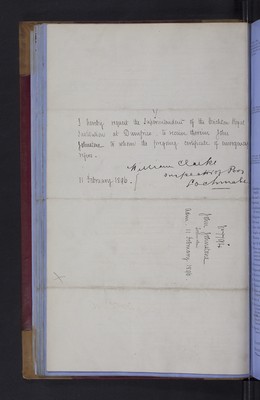 I hereby request the Superintendent of the Crichton Royal
Institution at Dumfries to receive John
Johnstone to whom the foregoing certificate of emergency
refers.
William Clarke
Inspector of Poor
11 February 1896.
John Johnstone
Adm. 11 February 1896